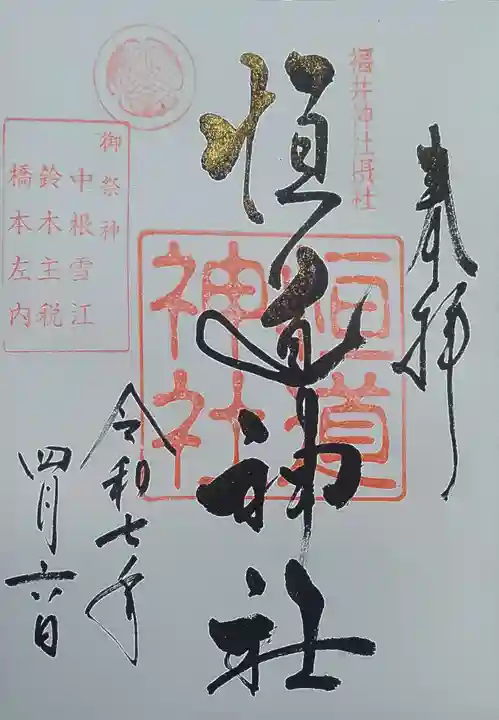 奉拝
福井神社摂社
恒道神社
恒道
神社
御祭神
中根雪江
鈴木主税
橋本左内
令和七年
四月六日